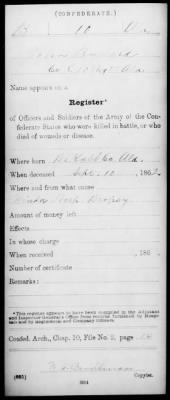 (CONFEDERATE.)
10 Ala
Co.
Name appears on a
Register*
of Officers and Soldiers of the Army of the Con-
federate States who were killed in battle, or who
died of wounds or disease.
Where born De Kalb Co. Ala.
When deceased Sept. 10, 1862
Where and from what cause
Dropsy
Amount of money left
Effects
In whose charge
When received , 186
Number of certificate
Remarks:
*This register appears to have been compiled in the Adjutant
and Inspector General's Office from records furnished by Hospi-
tals and by Regimental and Company Officers.
Confed. Arch., Chap. 10, File No. 2, page
(665)
Copyist.